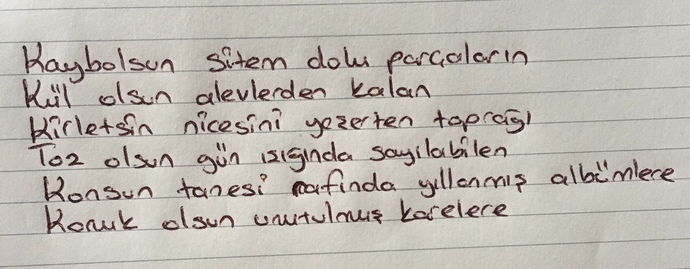 Kaybolsun sitem dolu parçaların
Kül olsun alevlerden kalan
Kirletsin nicesini yeşerten toprağı
Toz olsun gün ışığında sayılabilen
Konsun tanesi rafında yıllanmış albümlere
Konuk olsun unutulmuş karelere